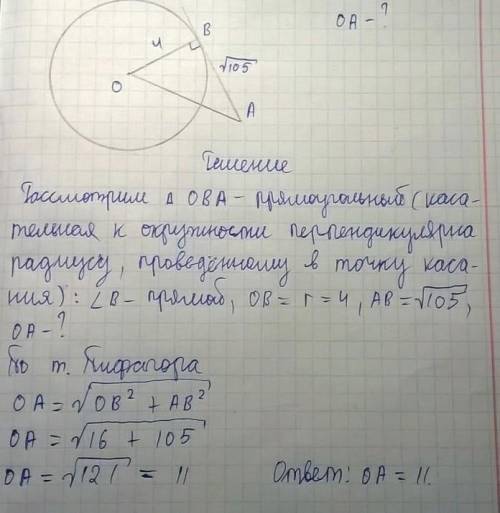 OA - ?
B
4
√105
O
A
Решение
Рассмотрим Δ OBA - прямоугольный (каса-
тельная к окружности перпендикулярна
радиусу, проведённому в точку каса-
ния): ∠B - прямой, OB = r = 4, AB = √105,
OA - ?
По т. Пифагора
OA = √OB² + AB²
OA = √16 + 105
OA = √121 = 11
Ответ: OA = 11.